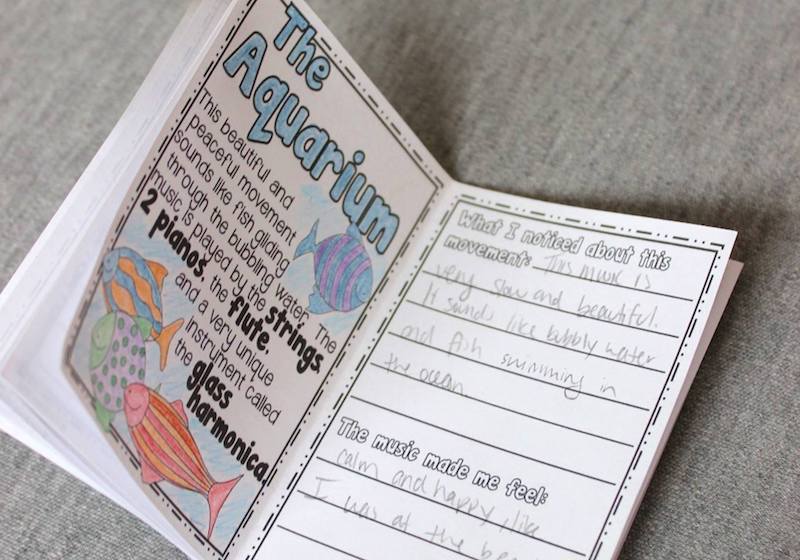 The
Aquarium
This beautiful and
peaceful movement
sounds like fish gliding
through the bubbling water. The
music is played by the strings,
2 pianos, the flute,
and a very unique
instrument called
the glass
harmonica.
What I noticed about this
movement: This music is
very slow and beautiful.
It sounds like bubbly water
and fish swimming in
the ocean.
The music made me feel:
calm and happy, like
I was at the